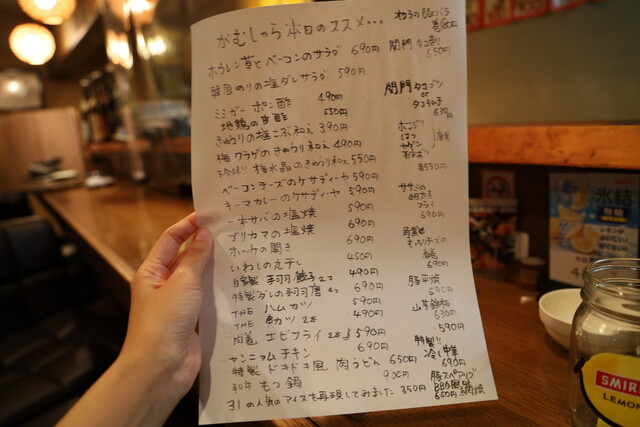 がむしゃら本日のオススメ...
ホウレン草とベーコンのサラダ 690円
韓国のりの塩ダレサラダ 590円
ミミガーポン酢 490円
地鶏の 酢 550円
きゅうりの塩こぶ和え 390円
梅クラゲのきゅうり和え 490円
梅水晶のきゅうり和え 550円
ベーコンチーズのケサディーヤ 590円
キーマカレーのケサディーヤ 590円
一本サバの塩焼 590円
ブリカマの塩焼 690円
ホッケの開き 690円
いわしの丸干し 450円
自家製 手羽餃子2コ 490円
特製ダレの手羽唐 690円
THE ハムカツ 590円
THE 串カツ 2本 490円
肉巻 エビフライ 2本 590円
ヤンニョムチキン 690円
特製 ドキドキ風 肉うどん 650円
和牛 もつ鍋 900円
31の人気のアイスを再現してみました 350円
関門 タコ
650円
関門 タコブツ
or
タコキムチ
ササミの
明太子
フライ
690円
きゅうりチーズの
690円
豚平焼
690円
山芋鉄板
590円
特製!!
冷し中華
690円
豚スペアリブ
BBQ風味
650円
氷結
SMIRN
LEMON